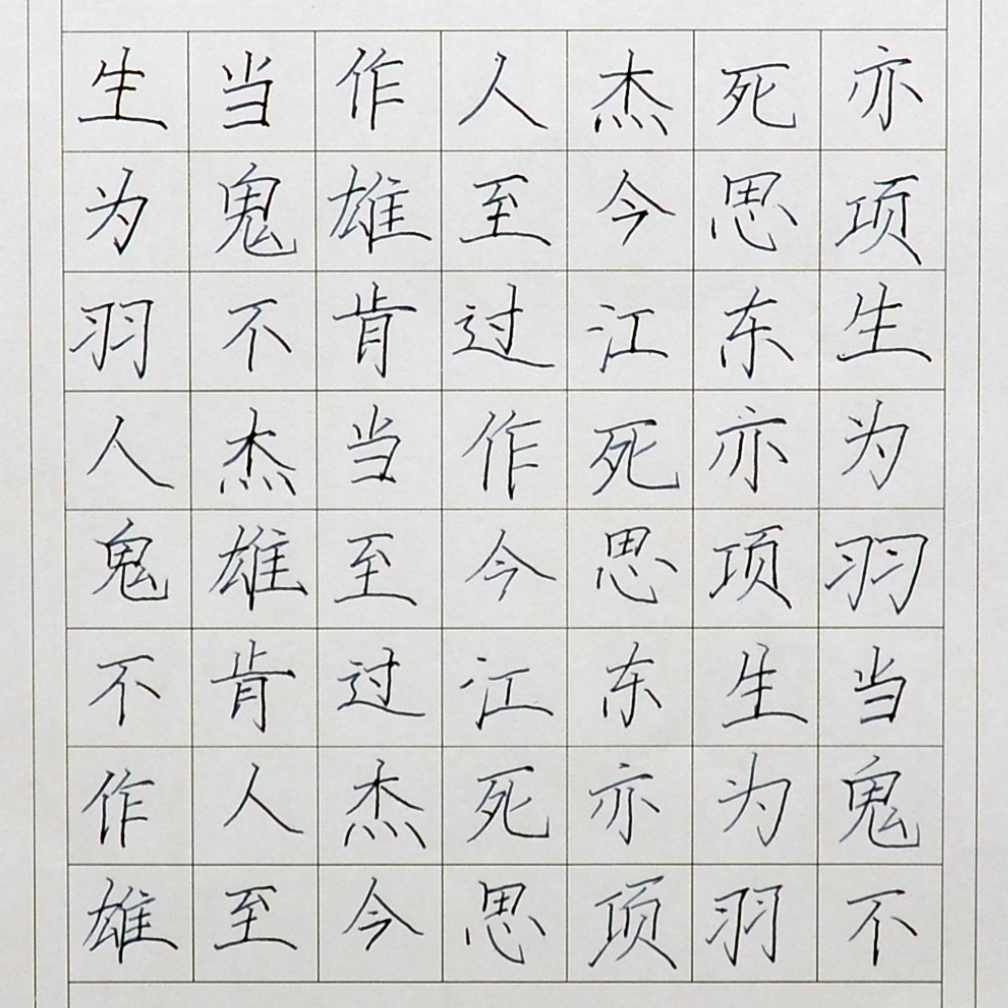 生当作人杰死亦
为鬼雄至今思项
羽不肯过江东生
人杰当作死亦为
鬼雄至今思项羽
不肯过江东生当
作人杰死亦为鬼
雄至今思项羽不